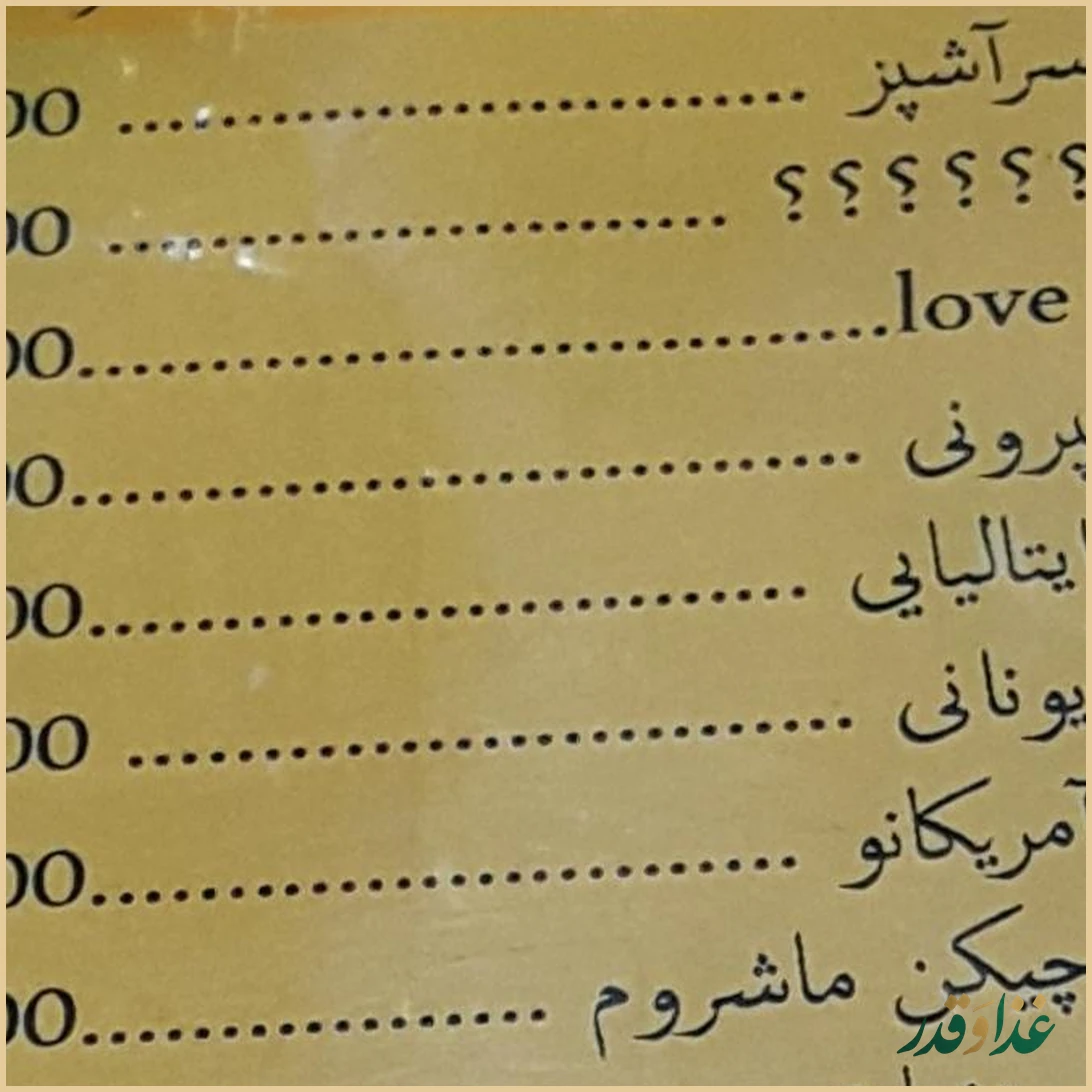 سرآشپز ........................... 00
؟؟؟؟؟؟ ........................ 00
love ............................... 00
پپرونی .............................. 00
ایتالیایی ........................... 00
یونانی ........................... 00
آمریکانو ........................... 00
چیکن ماشروم .................. 00
غذا و قدر